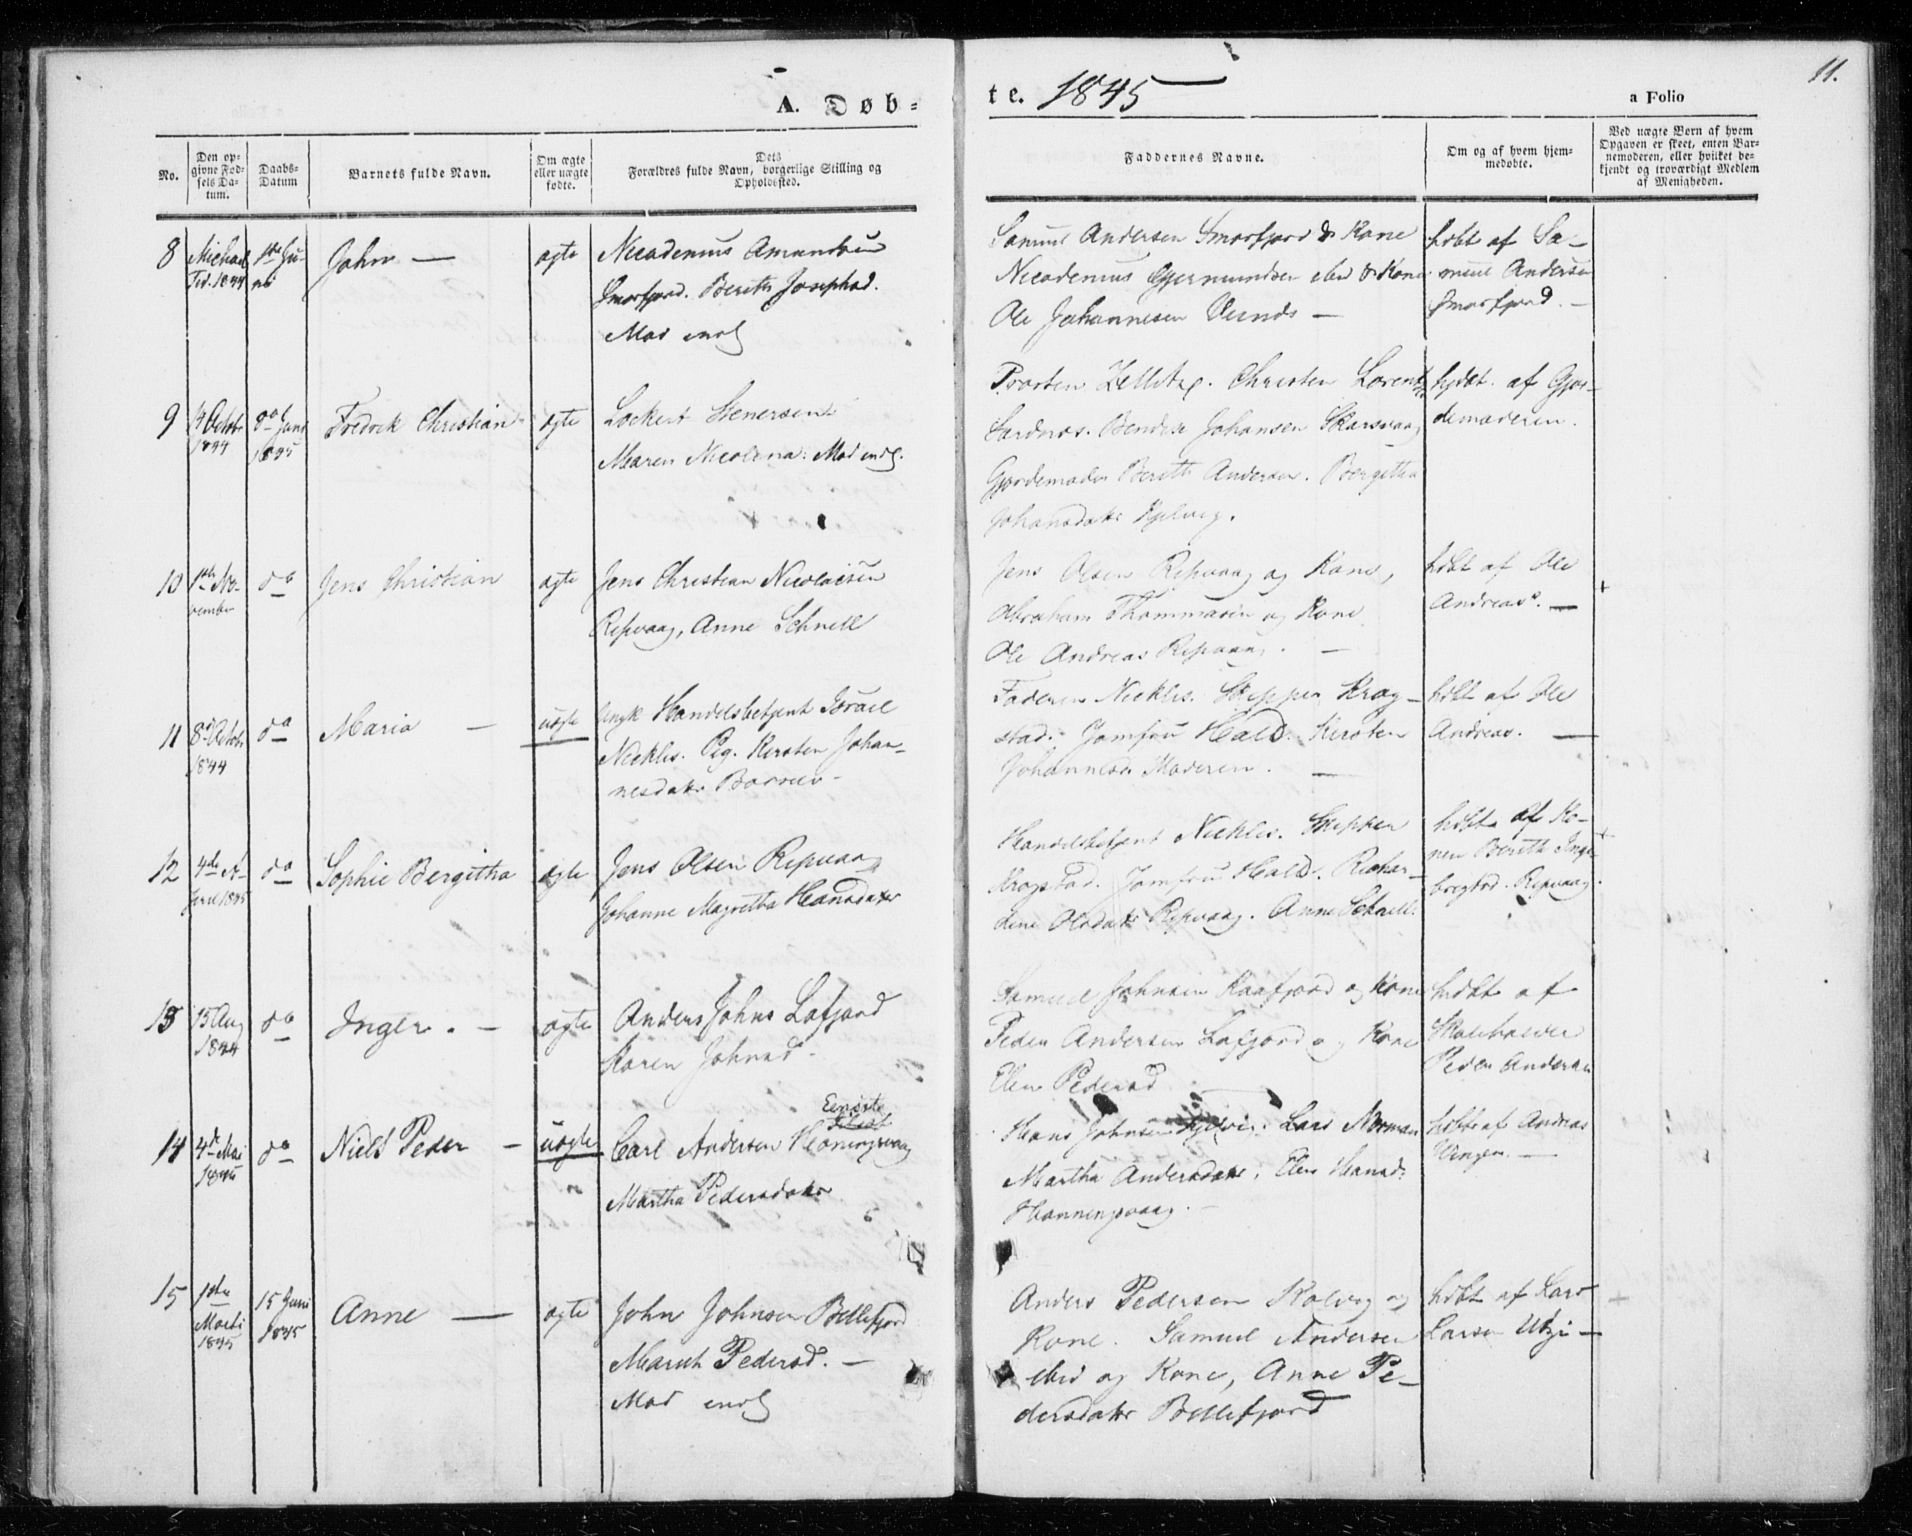 11.
A. Døb-
te. 1845
a Folio
No.
Den op-
givne Fød-
sels Da-
tum.
Daabs-
Datum
Barnets fulde Navn.
Om ægte
eller uægte
fødte.
Dets
Forældres fulde Navn, borgerlige Stilling og
Opholdssted.
Faddernes Navne.
Om og af hvem hjem-
medøbte.
Ved uægte Børn af hvem
Opgaven er skeet, enten Bar-
nemoderen, eller hvilket be-
kjendt og troværdigt Medlem
af Menigheden.
8
Michael
Tid. 1844
1ste Ju-
ni
John —
ægte
Nicodemus Amundsen
Smorfjord. Bereth Josephsd.
Mod
Samuel Andersen Smorfjord & Kone
Nicodemus Gjermundsen ebd & Kone
Ole Johannesen
hdbt af Sa-
muel Andersen
Smorfjord. —
9
14 Octobr
1844
1845
Fredrik Christian
ægte
Lockert Stenersen
Maren Nicolina.
Christen Lorentz
Sardnes. Johansen Skarsvaag
Gjordemoder Bereth Andersen. Bergitha
Johansdatr Kjelvig.
hjdbt. af Gjor-
demoderen.
10
1ste No-
vember
do
Jens Christian
ægte
Jens Christian Nicolaisen
Repvaag, Anne Schnell
Jens Olsen Repvaag og Kone,
Abraham Thommasen og Kone
Ole Andreas Repvaag. —
hdbt af Ole
Andreas. —
11
8de Octobr
1844
do
Maria —
uægte
Ungk Handelsbetjent Israel
Nicklis. Pig. Kersten Johan-
nesdatr
Faderen Nicklis. Skipper Krog-
stad. Jomfru Hald. Kersten
Johannesd. Moderen. —
hdbt af Ole
Andreas. —
12
4de A-
pril 1845
do
Sophie Bergitha
ægte
Jens Olsen Repvaag
Johanne Magretha Hansdatr
Handelsbetjent Nicklis. Skipper
Krogstad. Jomfru Hald. Rickar-
dine Olsdatr Repvaag. Anne Schnell.
hdbt af Ko-
nen Bereth Inge-
borgsd. Repvaag.
13
15 Aug
1844
do
Inger. —
ægte
Anders Johns Lafjord
Karen Johnsd.
Samuel Johnsen Kaafjord og Kone
Peder Andersen Lafjord og Kone
Elen Pedersd
hdbt af
Skoleholder
Peder Andersen
14
4de Mai
1845
do
Niels Peder —
uægte
Carl Andersen Honingsvaag
Martha Pedersdatr
Hans Johnsen Lars Norman
Martha Andersdatr, Elen Hansd.
Honningsvaag. —
hdbt af Andreas
15
1ste
Marti
1845
15 Juni
1845
Anne —
ægte
John Johnsen Billefjord
Marit Pedersd. —
Mod
Anders Pedersen Kolvig og
Kone. Samuel Andersen
ebd og Kone, Anne Pe-
dersdatr Billefjord
hdbt af Lars
Larsen —